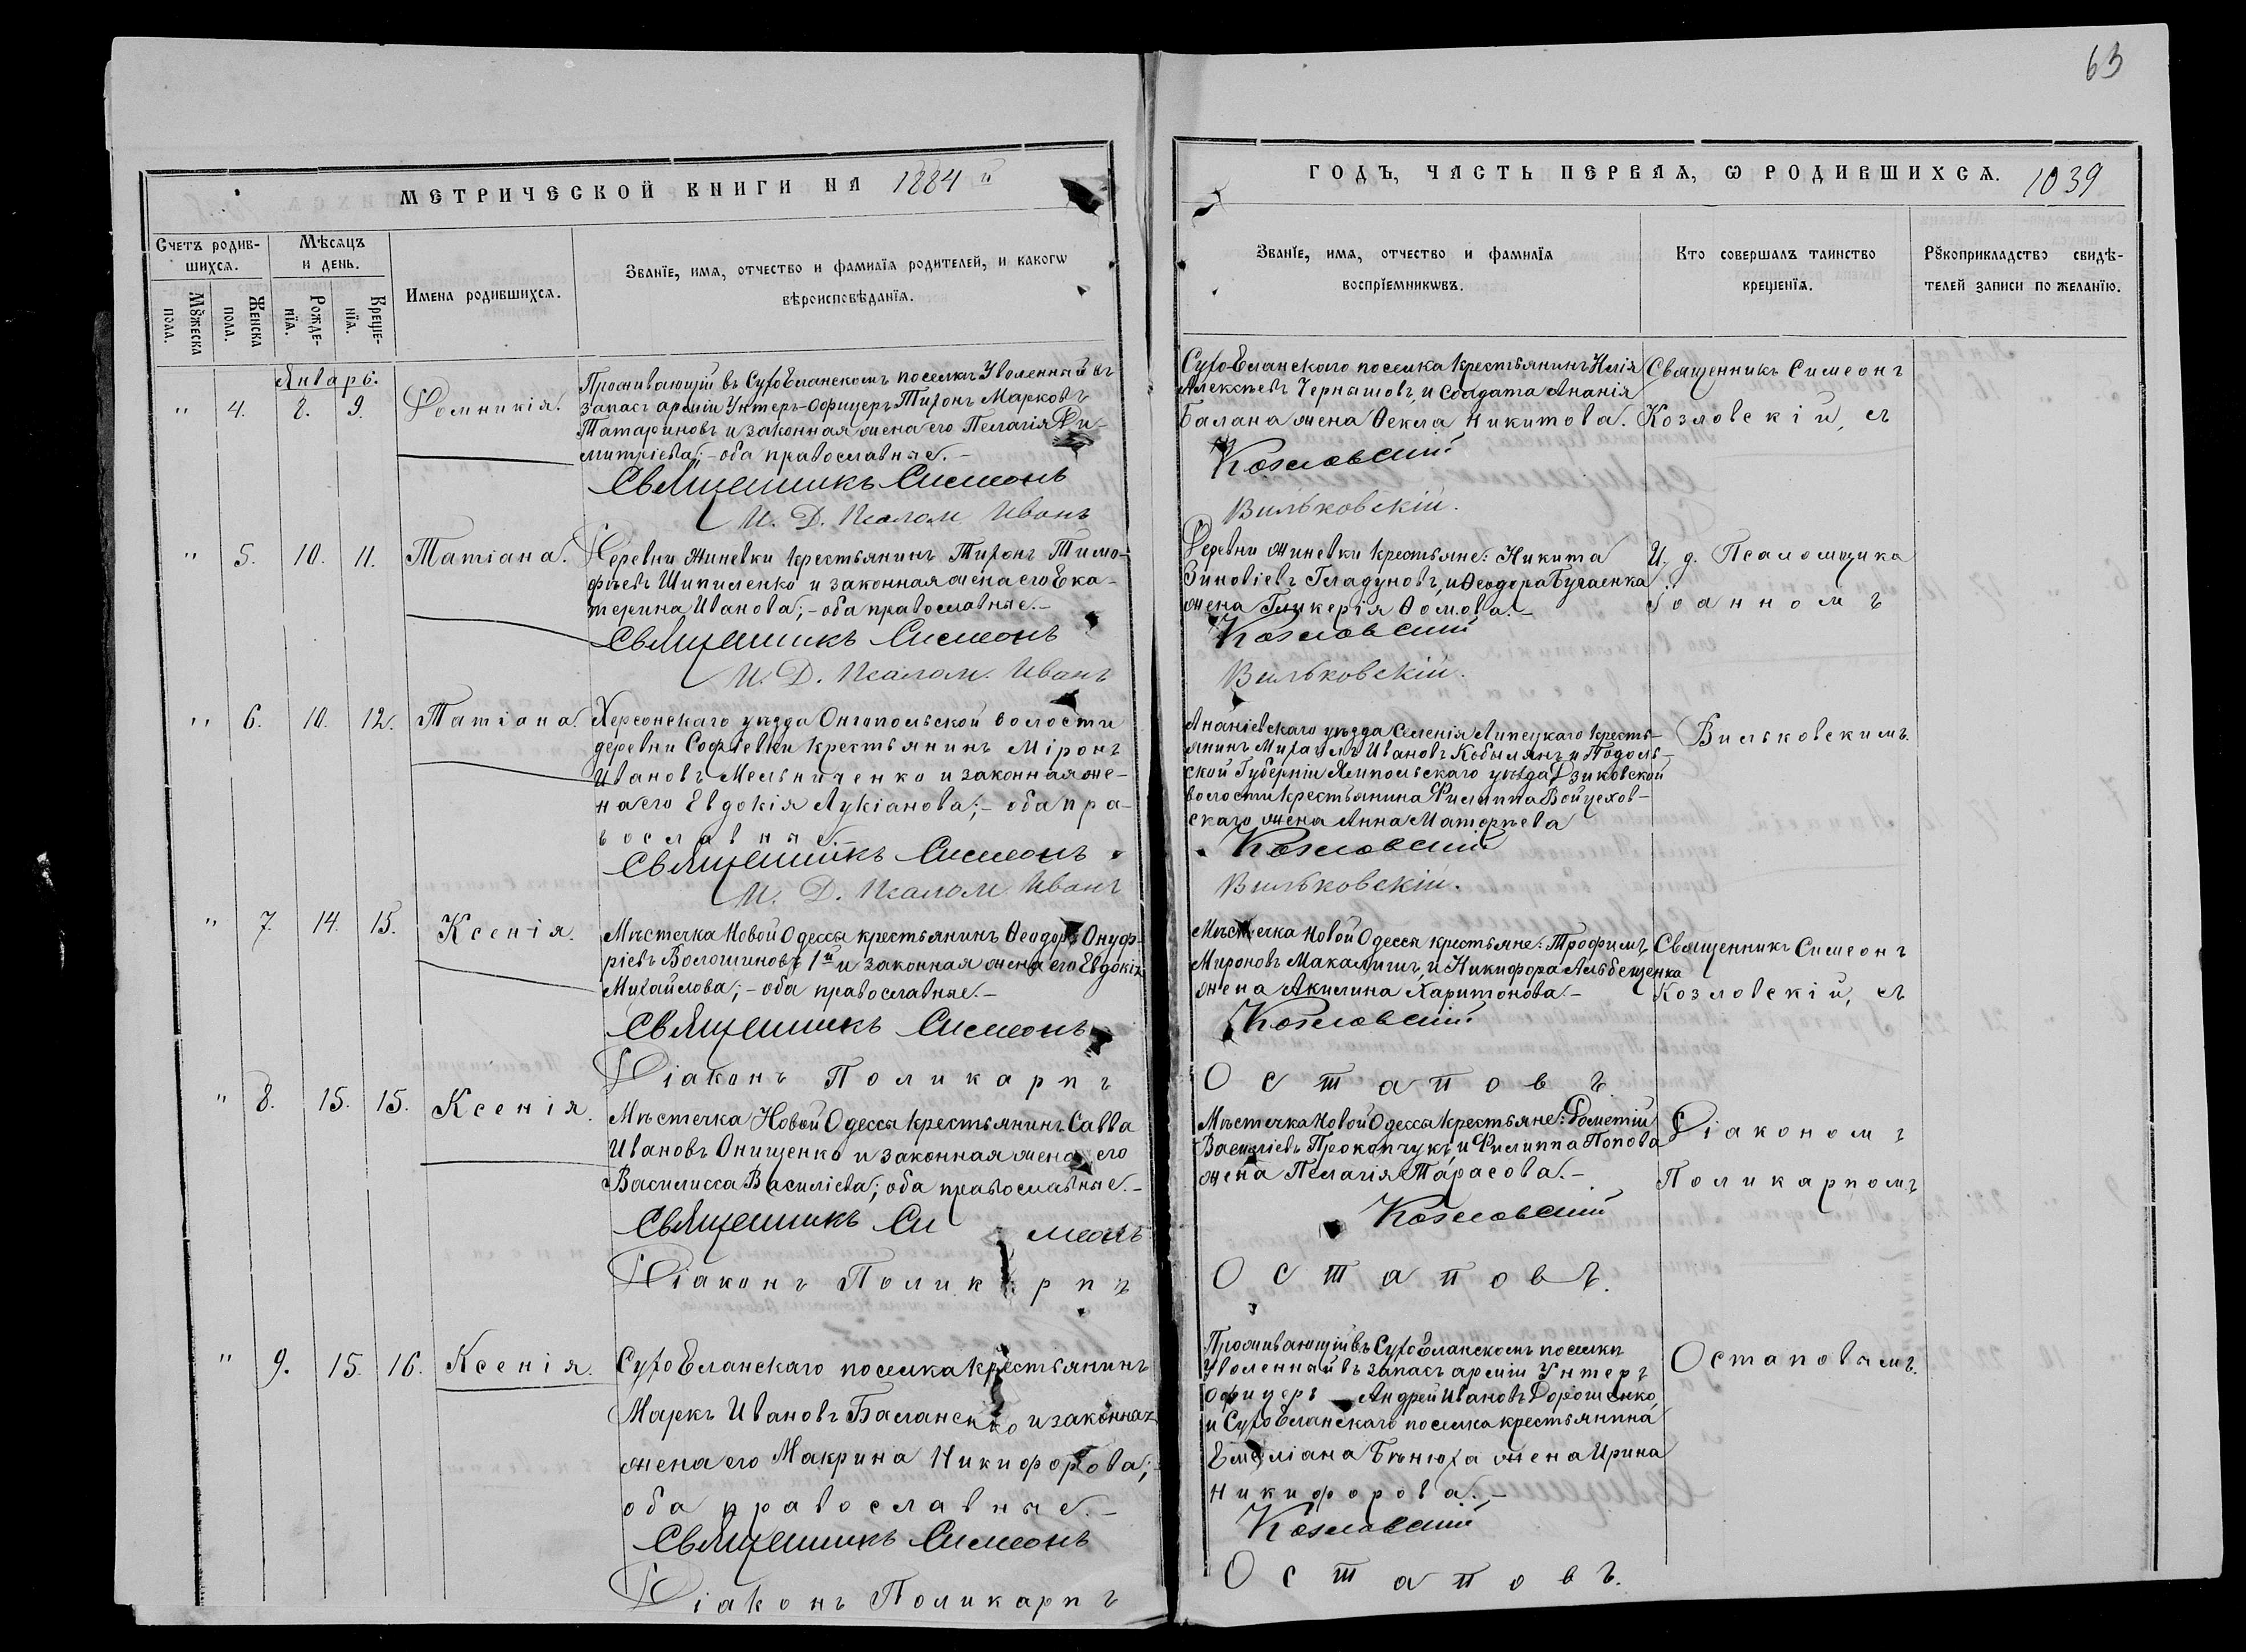 63
МЕТРИЧЕСКОЙ КНИГИ НА 1884 й
ГОДЪ, ЧАСТЬ ПЕРВАЯ, Ѡ РОДИВШИХСЯ. 1039
Счетъ родив-
шихся.
Мѣсяцъ
и день.
Мꙋжеска
пола.
Женска
пола.
Рожде-
нїя.
Креще-
нїя.
Имена родившихся.
Званїе, имя, отчество и фамилїя родителей, и какогѡ
вѣроисповѣданїя.
Званїе, имя, отчество и фамилїя
воспрїемникѡвъ.
Кто совершалъ таинство
крещенїя.
Рꙋкоприкладство свидѣ-
телей записи по желанїю.
Январь.
" 4. 8. 9. Домникія.
Проживающій въ СухоЕланскомъ поселкѣ Уволенный въ
запасъ арміи Унтеръ-Офицеръ Тихонъ Марковъ
Татариновъ и законная жена его Пелагія Ди-
митріева; - оба православные. -
Священникъ Симеонъ
И. Д. Псалом. Иванъ
Сухо-Еланскаго поселка крестьянинъ Илія
Алексѣевъ Чернышовъ, и Солдата Ананія
Балана жена Ѳекла Никитова.
Козловскій
Вильковскій.
Священникъ Симеонъ
Козловскій, съ
" 5. 10. 11. Татіана.
Деревни Жиневки крестьянинъ Тихонъ Тимо-
фѣевъ Шипиленко и законная жена его Ека-
терина Иванова; - оба православные. -
Священникъ Симеонъ
И. Д. Псалом. Иванъ
Деревни Жиневки крестьяне: Никита
Зиновіевъ Гладуновъ, и Ѳеодора Бугаенка
жена Гликерія Ѳомова. -
Козловскій
Вильковскій.
И. д. Псаломщика
Іоанномъ
" 6. 10. 12. Татіана.
Херсонскаго уѣзда Онгопольской волости
деревни Софіевки крестьянинъ Міронъ
Ивановъ Мельниченко и законная же-
на его Евдокія Лукіанова; - оба пра-
вославные.
Священникъ Симеонъ
И. Д. Псалом Иванъ
Ананіевскаго уѣзда Селенія Липецкаго кресть-
янинъ Михаилъ Ивановъ Кобылянъ и Подоль-
ской Губерніи Ямпольскаго уѣзда Дзиковской
волости крестьянина Филиппа Войцехов-
скаго жена Анна Матфѣева
Козловскій
Вильковскій.
Вильковскимъ.
" 7. 14. 15. Ксенія.
Мѣстечка Новой Одессы крестьянинъ Ѳеодоръ Онуф-
ріевъ Волошиновъ 1й и законная жена его Евдокія
Михайлова; - оба православные. -
Священникъ Симеонъ
Діаконъ Поликарпъ
Мѣстечка Новой Одессы крестьяне: Трофимъ
Мироновъ и Никифора
жена Акилина Харитонова. -
Козловскій
Остаповъ
Священникъ Симеонъ
Козловскій, съ
" 8. 15. 15. Ксенія.
Мѣстечка Новой Одессы крестьянинъ Савва
Ивановъ Онищенко и законная жена его
Василисса Василіева; оба православные. -
Священникъ Си меонъ
Діаконъ Поликарпъ
Мѣстечка Новой Одессы крестьяне: Дометій
Василіевъ Прокопчукъ, и Филиппа Попова
жена Пелагія Тарасова. -
Козловскій
Остаповъ.
Діакономъ
Поликарпомъ
" 9. 15. 16. Ксенія.
СухоЕланскаго поселка крестьянинъ
Маркъ Ивановъ Баланенко и законная
жена его Макрина Никифорова;
оба православные. -
Священникъ Симеонъ
Діаконъ Поликарпъ
Проживающій въ СухоЕланскомъ поселкѣ
Уволенный въ запасъ арміи Унтеръ
Офицеръ Андрей Ивановъ Дорошенко,
и СухоЕланскаго поселка крестьянина
Емеліана жена Ирина
Никифорова. -
Козловскій
Остаповъ.
Остаповымъ.